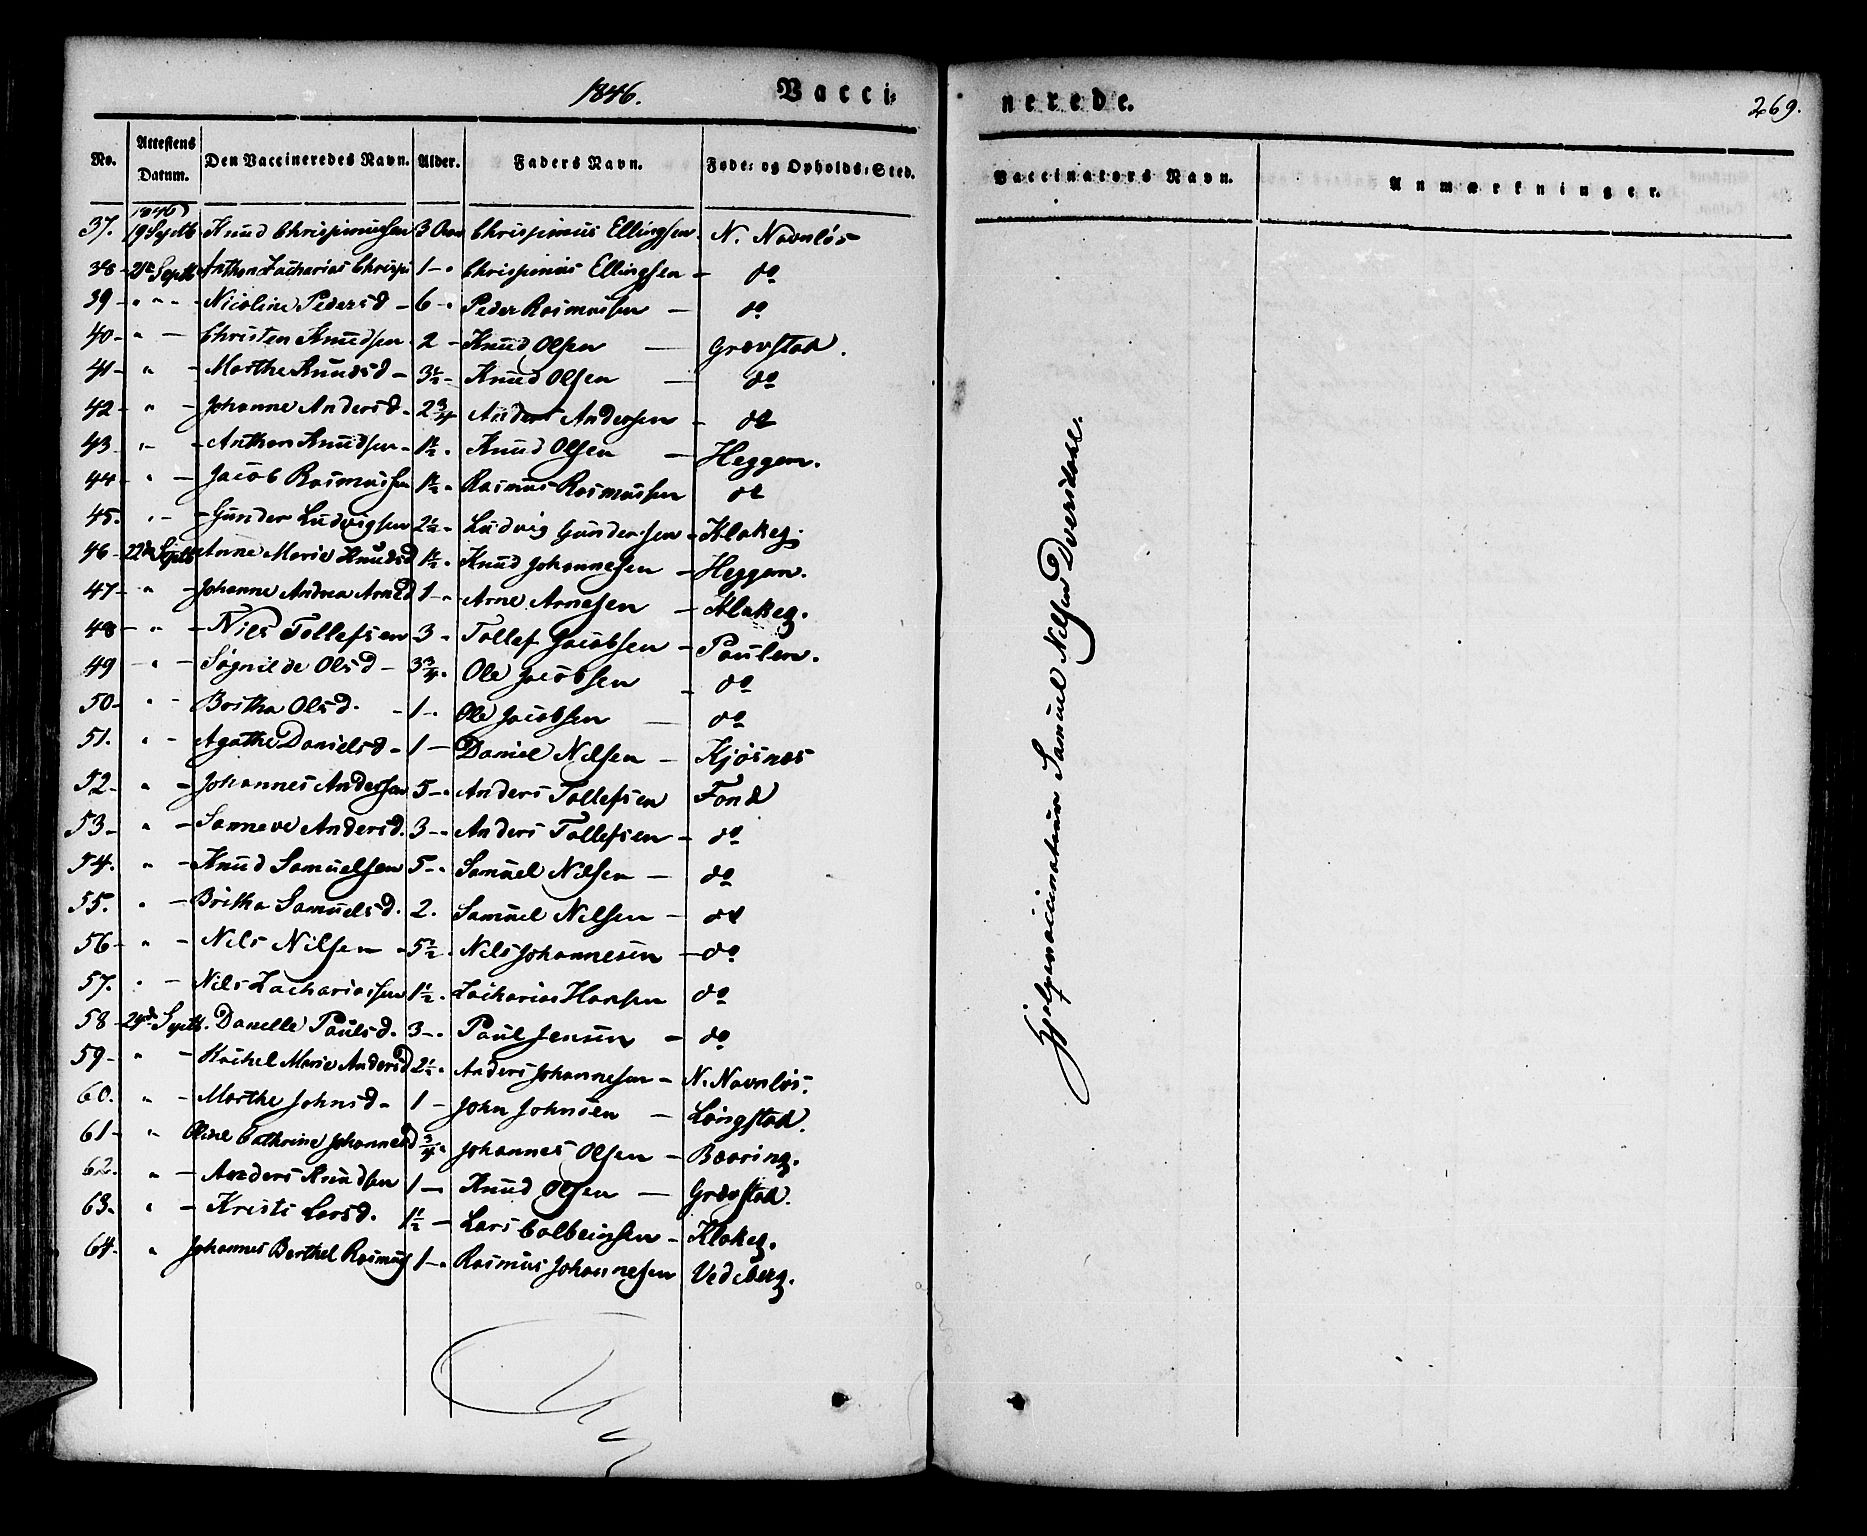 1846. Vacci-
nerede. 269.
No. Attestens Datum. Den Vaccineredes Navn. Alder. Faders Navn. Føde- og Opholds-Sted.
Vaccinators Navn. Anmærkninger.
1846
37. 19 Septb Knud Chrispinusen 3 Chrispinus Ellingsen N. Navnløs
38 - 21de Septb Anthon Zacharias Chrispi 1 - Chrispinus Ellingsen - do
39 - " - Nicoline Pedersd - 6 - Peder Rasmussen - do
40 - " - Christen Knudsen 2 - Knud Olsen - Grovstad.
41 - " - Marthe Knudsd - 3½ - Knud Olsen - do
42 - " - Johanne Andersd - 2¾ Anders Andersen - do
43 - " - Anthon Knudsen - 1½. Knud Olsen - Heggen.
44 - " - Jacob Rasmussen 1½. Rasmus Rasmussen do
45. " - Gunder Ludvigsen 2½ - Ludvig Gundersen - Klakeg.
46 - 22de Septb Anne Marie Knudsd 1½. Knud Johannesen - Heggen.
47 - " - Johanne Andrea Arnesd 1 - Arne Arnesen - Klakeg.
48 - " - Niels Tollefsen 3 - Tollef Jacobsen - Paulen.
49 - " - Søgnilde Olsd - 3¾. Ole Jacobsen - do
50 - " - Britha Olsd. - 1 - Ole Jacobsen - do
51. " - Agathe Danielsd - 1 - Daniel Nilsen - Kjøsnes
52 - " - Johannes Andersen 5 - Anders Tollefsen Fond
53 - " - Sanneve Andersd. 3 - Anders Tollefsen - do
54. " - Knud Samuelsen 5 - Samuel Nilsen - do
55. " - Britha Samuelsd. 2. Samuel Nilsen - do
56 - " - Nils Nilsen - 5½. Nils Johannesen - do
57. " - Nils Zachariassen 1½. Zacharias Hansen do
58 - 24de Septb. Danelle Paulsd. 3 - Paul Jensen - do
59 - " - Rachel Marie Andersd 2½. Anders Johannesen - N. Navnløs.
60. " - Marthe Johnsd - 1 - John Johnsen - Langstad.
61 - " Oline Cathrine Johannesd ¾. Johannes Olsen - Baaring.
62. " - Anders Knudsen 1 - Knud Olsen - Grovstad.
63. " - Kristi Larsd. 1½ - Lars Colbeinsen - Klakeg.
64. " Johannes Berthel Rasmus 1 - Rasmus Johannesen Vedeberg.
Hjelpevaccinateur Samuel Nilsen Dversdal.